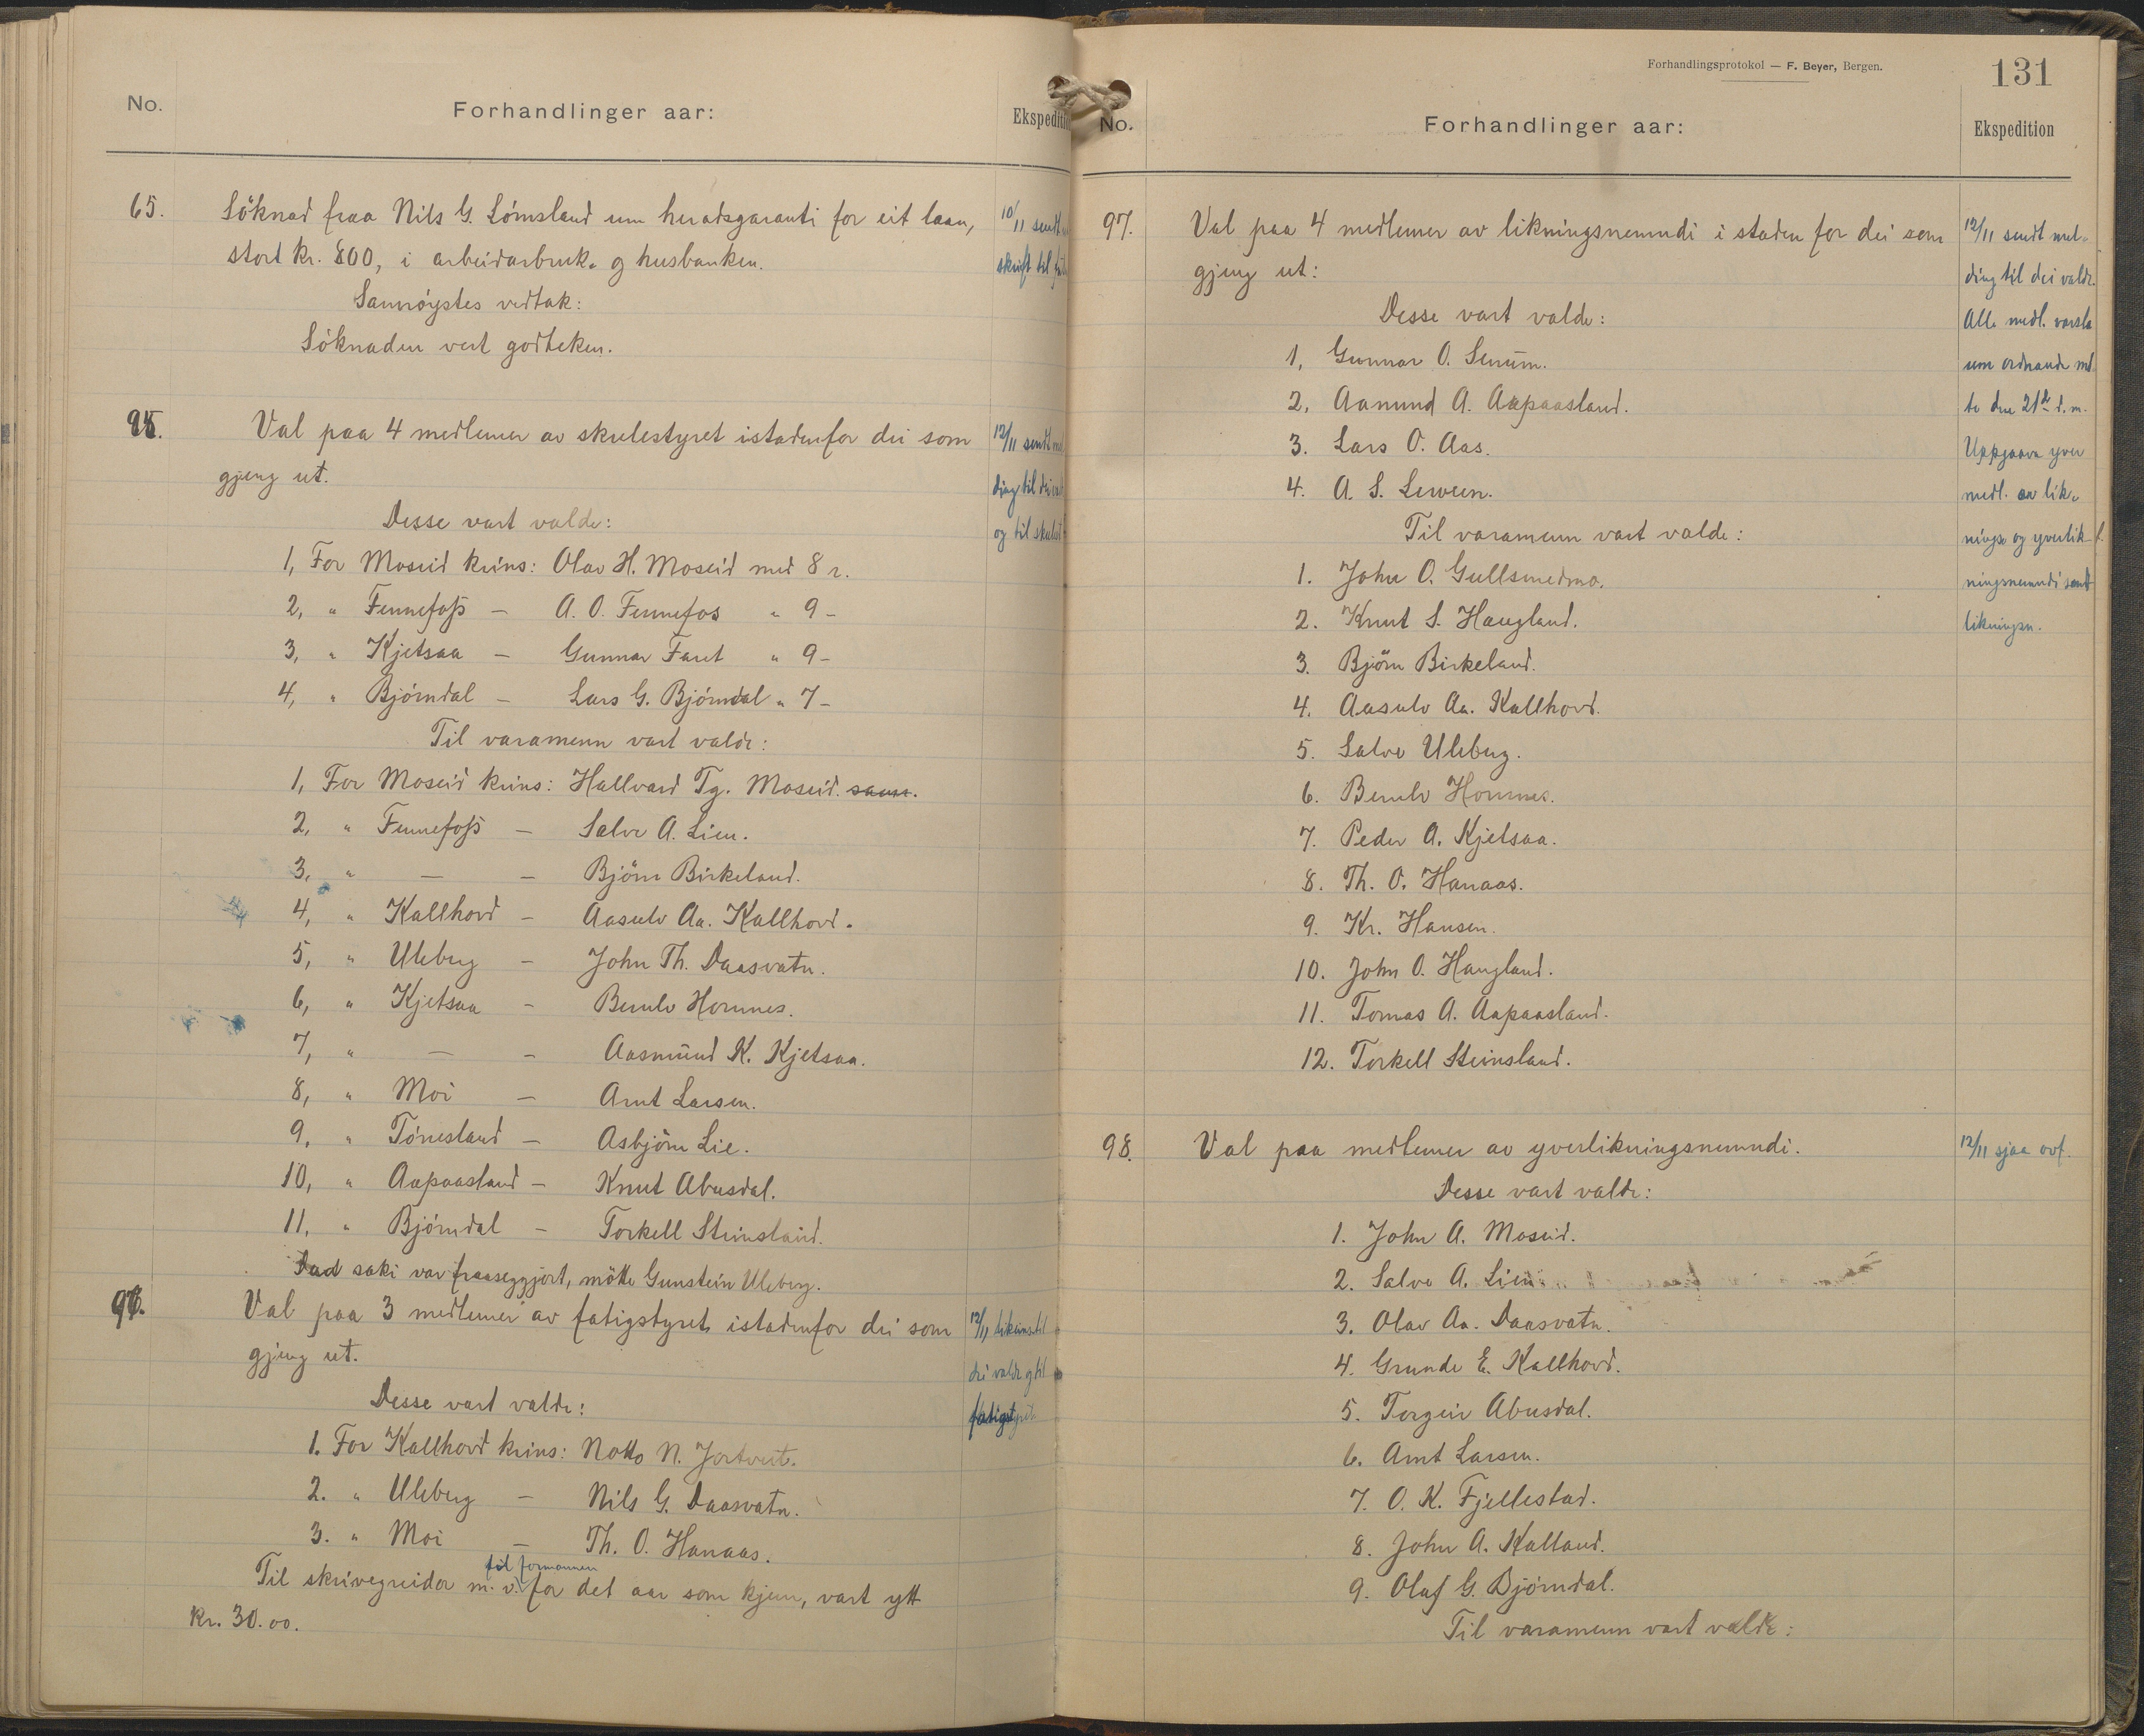 No.
Forhandlinger aar:
Ekspediti
65.
Söknad fraa Nils G. Lömsland um heradsgaranti for eit laan,
stort kr. 800, i arbeidarbruk- og husbanken.
Samröystes vedtak:
Söknaden vert godteken.
10/11 sendt
skrift til
95.
Val paa 4 medlemer av skulestyret istadenfor dei som
gjeng ut.
Desse vart valde:
1, For Moseid krins: Olav H. Moseid med 8 r.
2, " Fennefoss — A. O. Fennefos " 9 –
3, " Kjetsaa — Gunnar Faret " 9 –
4, " Björndal — Lars G. Björndal " 7 –
Til varamenn vart valde:
1, For Moseid krins: Hallvard Tg. Moseid.
2, " Fennefoss — Salve A. Lien.
3, " — — Björn Birkeland.
4, " Kallhovd — Aasulv Aa. Kallhovd.
5, " Uleberg — John Th. Daasvatn.
6, " Kjetsaa — Bernlv Hornnes.
7, " — — Aasmund K. Kjetsaa.
8, " Moi — Arnt Larsen.
9, " Tönnesland — Asbjörn Lie.
10, " Aapaasland — Knut Abusdal.
11, " Björndal — Torkell Steinsland.
Daa saki var fraaseggjort, mötte Gunstein Uleberg.
12/11 sendt
ding til dei
og til skulest
96.
Val paa 3 medlemer av fatigstyret istadenfor dei som
gjeng ut.
Desse vart valde:
1. For Kallhovd krins: Notto N. Jortveit.
2. " Uleberg — Nils G. Daasvatn.
3. " Moi — Th. O. Hanaas.
til formannen
Til skrivegreidor m. v. for det aar som kjem, vart ytt
kr. 30.00.
12/11 likeins til
dei valde og til
fatigstyret
Forhandlingsprotokol — F. Beyer, Bergen.
131
No.
Forhandlinger aar:
Ekspedition
97.
Val paa 4 medlemer av likningsnemndi i staden for dei som
gjeng ut:
Desse vart valde:
1, Gunnar O. Senum.
2, Aanund A. Aapaasland.
3. Lars O. Aas.
4. A. S. Lerveen.
Til varamenn vart valde:
1. John O. Gullsmedmo.
2. Knut S. Haugland.
3. Björn Birkeland.
4. Aasulv Aa. Kallhovd.
5. Salve Uleberg.
6. Bernlv Hornnes.
7. Peder A. Kjetsaa.
8. Th. O. Hanaas.
9. Kr. Hansen.
10. John O. Haugland.
11. Tomas A. Aapaasland.
12. Torkell Steinsland.
12/11 sendt mel-
ding til dei valde.
Alle medl. varsla
um ordnande mö
te den 21de d. m.
Uppgaava yver
medl. av lik-
nings- og yverlik-
ningsnemndi sendt
likningsn.
98.
Val paa medlemer av yverlikningsnemndi.
Desse vart valde:
1. John A. Moseid.
2. Salve A. Lien
3. Olav Aa. Daasvatn.
4. Grunde E. Kallhovd.
5. Torgeir Abusdal.
6. Arnt Larsen.
7. O. K. Fjellestad.
8. John A. Kalland.
9. Olaf G. Björndal.
Til varamenn vart valde:
12/11 sjaa ovf.